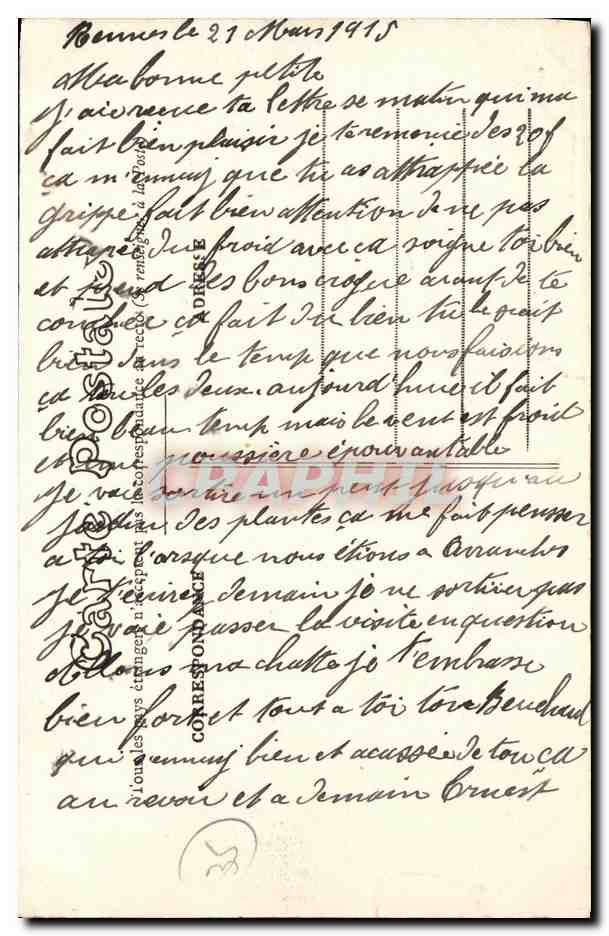 Rennes le 21 Mars 1915
Ma bonne petite
J'ai recue ta lettre se matin qui ma
fait bien plaisir je te remercie des 20f
ça m'ennuy que tu as attrappée la
grippe fait bien attention de ne pas
du froid avec ça soigne toi bien
et prend des bons avant de te
coucher ça fait du bien tu le
bien dans le temp que nous faisions
ça tou les deux. aujourd'hue il fait
bien beau temp mais le vent est froid
et une poussière épouvantable
Je vais sortire un peut jusqu'au
jardin des plantes ça me fait pensser
a toi l'orsque nous étions a Avranches
je demain je ne sortirer pas
je vais passer la visite en question
Allons ma chatte je t'embrasse
bien fort et tout a toi ton
qui s'ennuy bien et de tou ça
au revoir et a demain Ernest
Carte postale
Tous les pays étrangers n'acceptent pas la correspondance au recto (Se renseigner à la Poste)
CORRESPONDANCE
ADRESSE
DAPHN